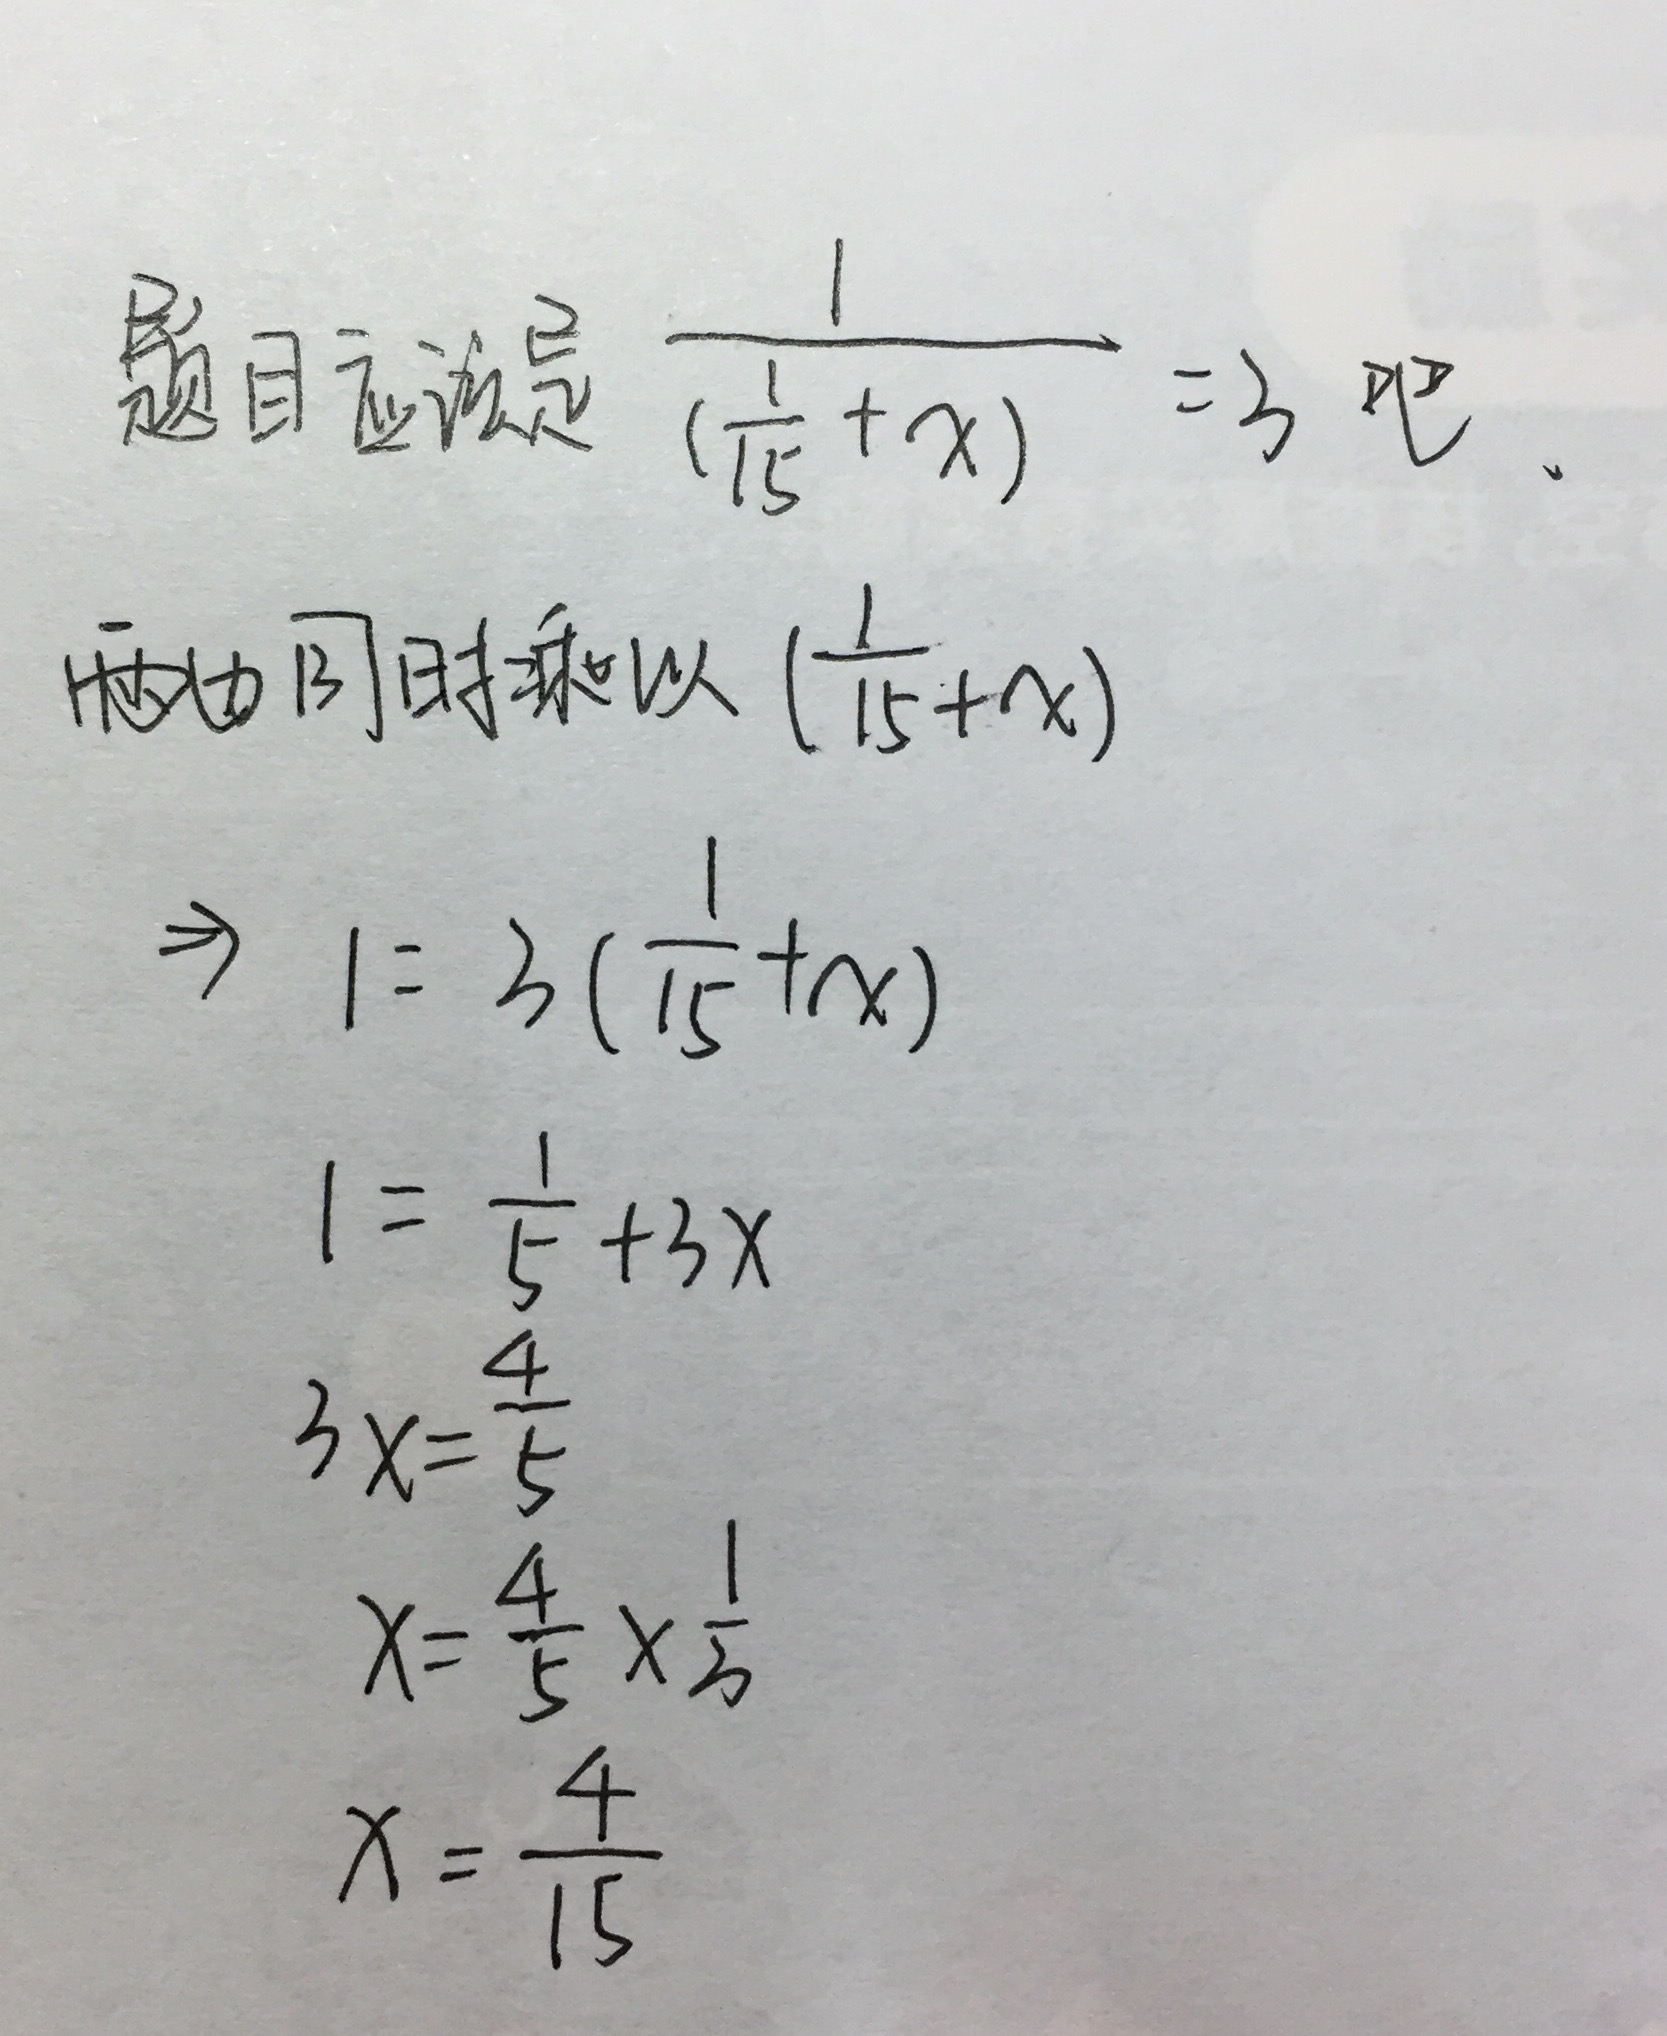 题目应该是 1/(1/15+x) =3 吧、
两边同时乘以 (1/15+x)
⇒ 1= 3(1/15+x)
1= 1/5+3x
3x=4/5
x=4/5×1/3
x=4/15